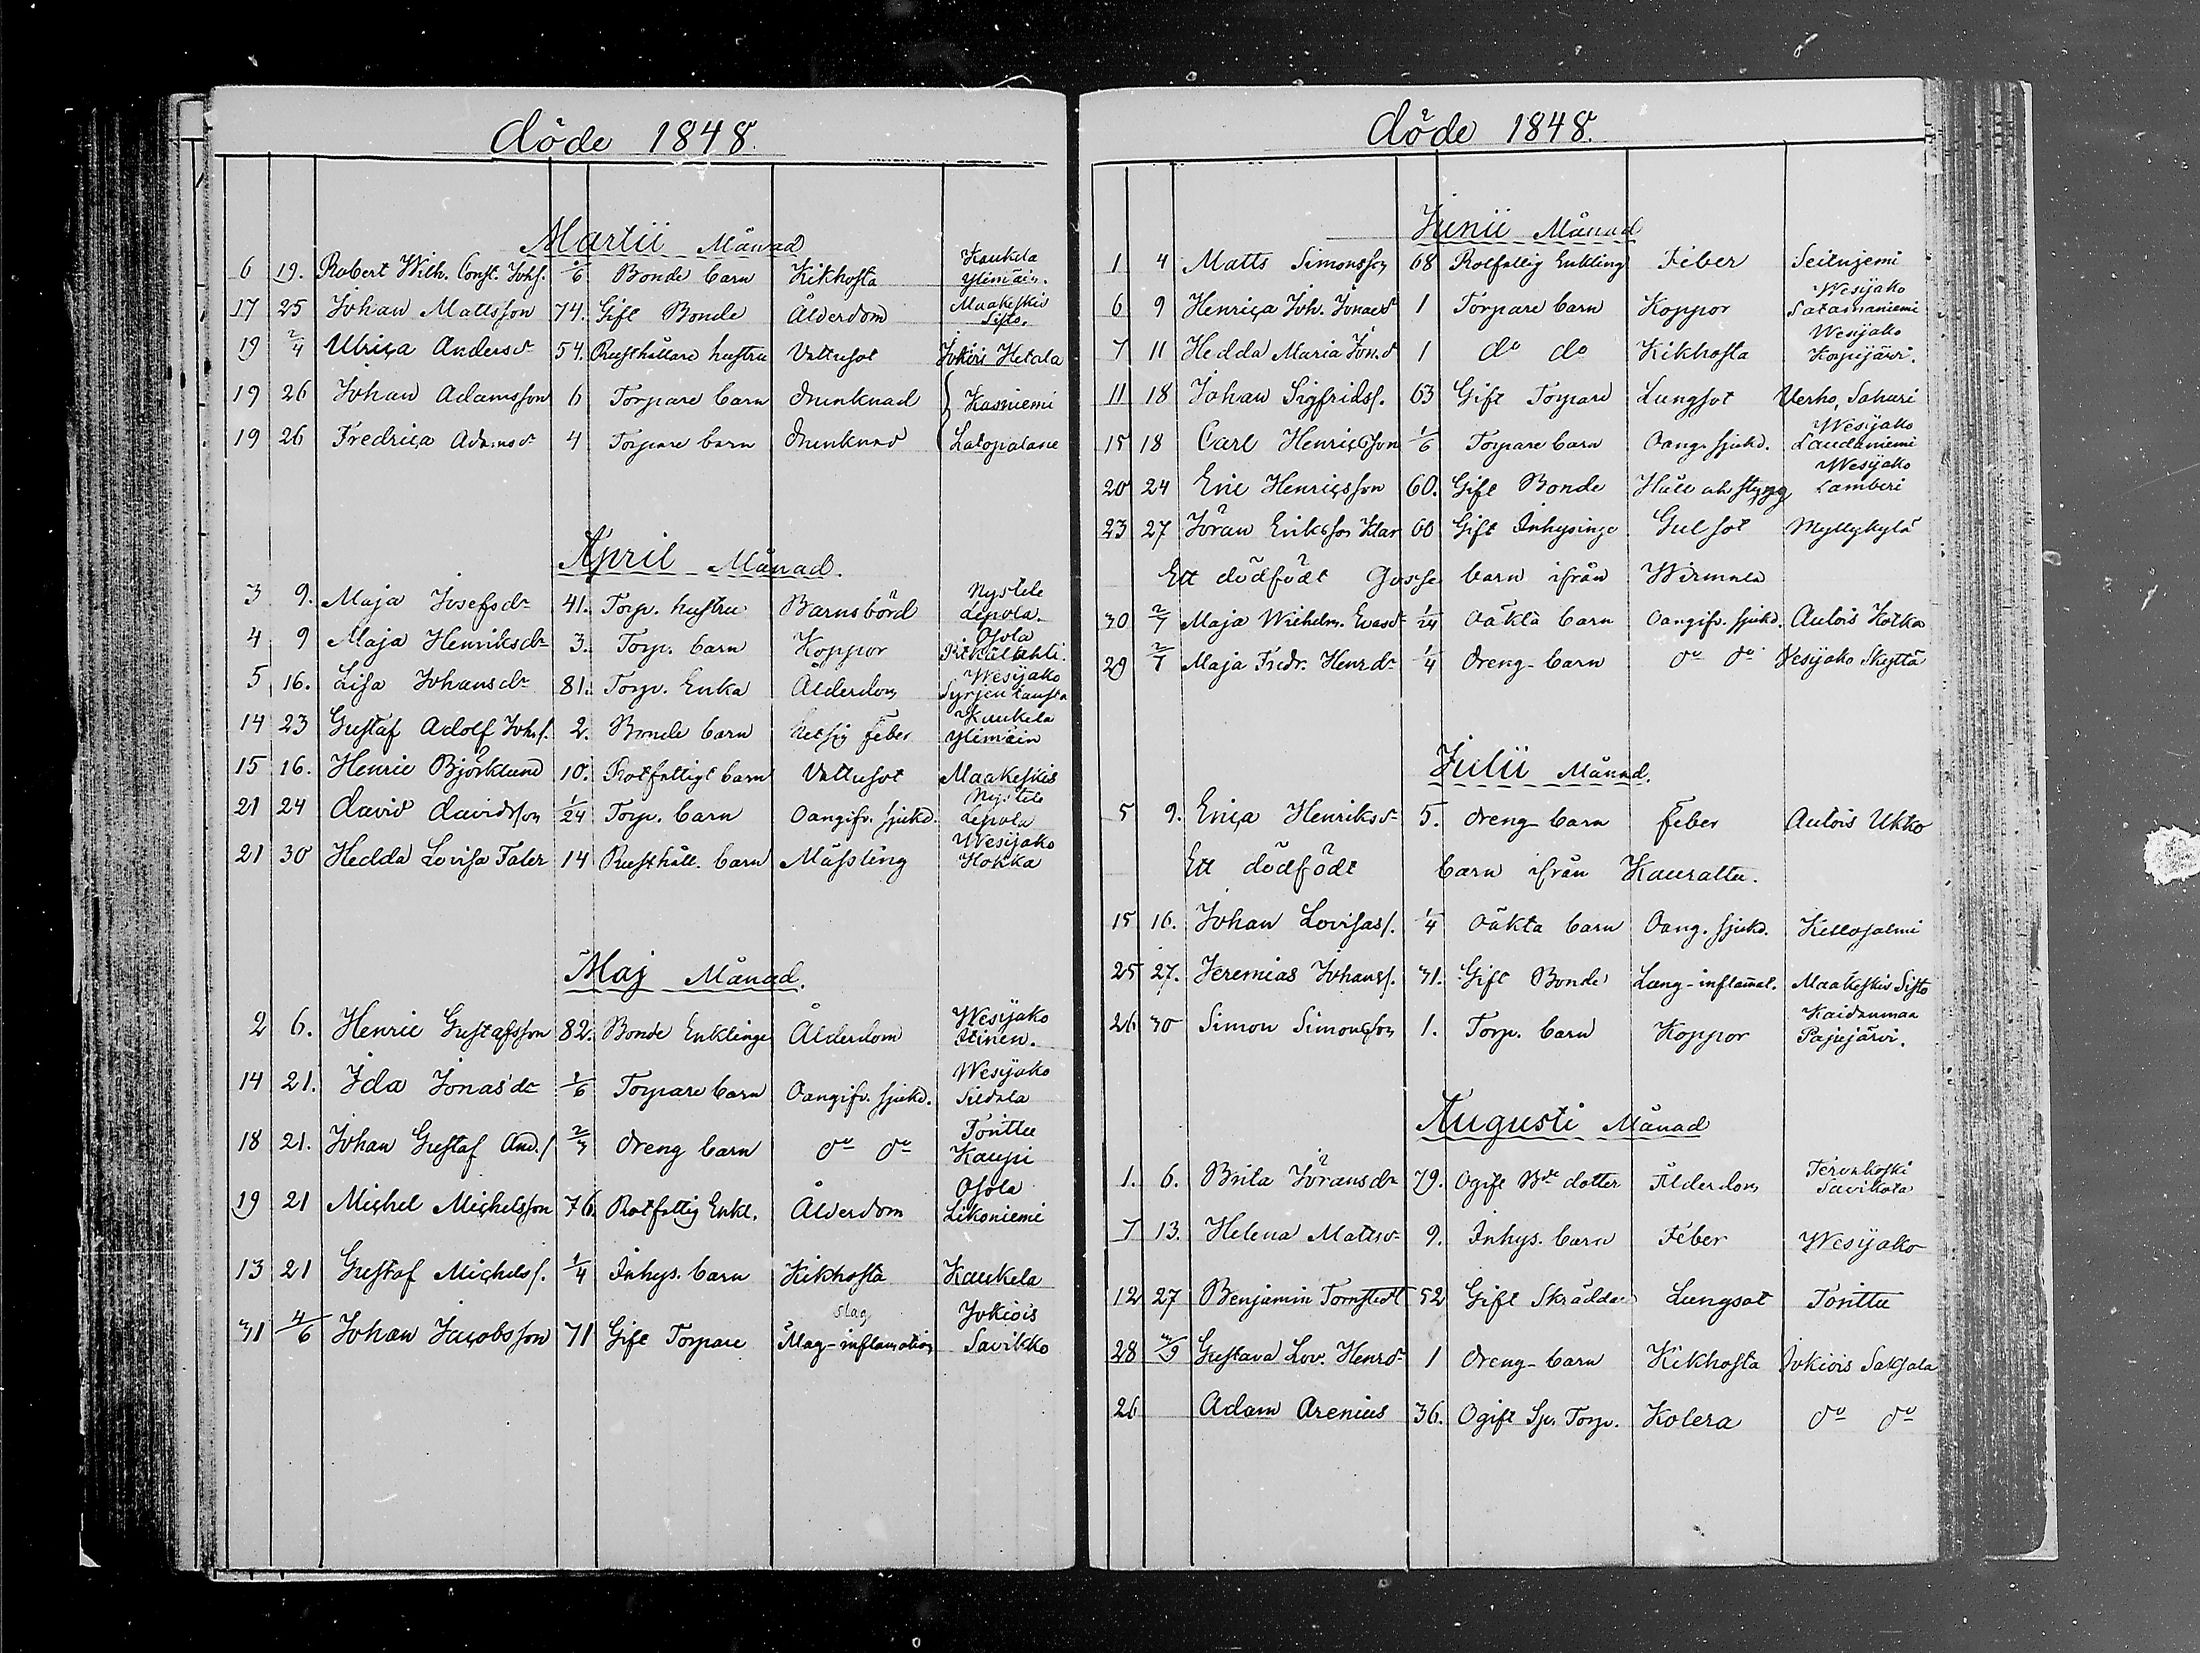 döde 1848.
Martii Månad
6 19. Robert Wilh. Const. Johs. 1/6 Bonde barn Kikhosta Kaukela Ylimäin.
17 25 Johan Mattsson 74. Gift Bonde Ålderdom Maakeskis Sipto.
19 2/4 Ulrica Andersdr 54. Rusthållare hustru Vattusot Jokiois Hetala
19 26 Johan Adamsson 6 Torpare barn drunknad Kasniemi
19 26 Fredrica Adamsdr 4 Torpare barn drunknad Latopalane
April Månad.
3 9. Maja Josefsdr 41. Torp. hustru Barnsbörd Nystele Lepola.
4 9 Maja Henriksdr 3. Torp. barn Koppor Osola
5 16. Lisa Johansdr 81. Torp. Enka Ålderdom Wesijako Syrjentausta
14 23 Gustaf Adolf Johs. 2. Bonde barn hetsig feber Kaukela Ylimäin
15 16. Henric Björklund 10. Rotfattigt barn Vattusot Maakeskis
21 24 David Davidsson 1/24 Torp. barn Oangifv. sjukd. Nystele Lepola
21 30 Hedda Lovisa Taler 14 Rusthåll. barn Mässling Wesijako Hokka
Maj Månad.
2 6. Henric Gustafsson 82. Bonde Enklinge Ålderdom Wesijako Itinen.
14 21. Ida Jonasdr 1/6 Torpare barn Oangifv. sjukd. Wesijako Sildala
18 21. Johan Gustaf And.s 2/3 dreng barn do do Tonttu Kaupi
19 21 Michel Michelsson 76. Rotfattig Enkl. Ålderdom Osola Likoniemi
13 21 Gustaf Michels s. 1/4 Inhys. barn Kikhosta Kaukela
slag
31 4/6 Johan Jacobsson 71 Gift Torpare Mag-inflamation Jokiois Savikko
döde 1848.
Junii Månad
1 4 Matts Simonsson 68 Rotfattig Enkling Feber Seitniemi
6 9 Henrica Joh. Jonaedr 1 Torpare barn Koppor Wesijako Satamaniemi
7 11 Hedda Maria Jon.dr 1 do do Kikhosta Wesijako Korpijärvi.
11 18 Johan Sigfridss. 63 Gift Torpare Lungsot Verho, Sahari
15 18 Carl Henricsson 1/6 Torpare barn Oang. sjukd. Wesijako Laudaniemi
20 24 Eric Henricsson 60. Gift Bonde Håll och stygg Wesijako Lamberi
23 27 Jöran Eriksson Klar 60 Gift Inhysinge Gulsot Myllykylä
Ett dödfödt Gosse barn ifrån Wirmala
30 2/7 Maja Wilhelm. Evasdr 1/24 Oäkta barn Oangifv. sjukd. Autois Kotka
29 2/7 Maja Fredr. Henrdr 1/4 dreng-barn do do Vesijako Skyttä
Julii Månad.
5 9. Erica Henriksdr 5. dreng-barn feber Autois Ukko
Ett dödfödt barn ifrån Kaurattu.
15 16. Johan Lovisas s. 1/4 Oäkta barn Oang. sjukd. Kellosalmi
25 27. Jeremias Johanss. 31. Gift Bonde Lung-inflamat. Maakeskis Sipto
26 30 Simon Simonsson 1. Torp. barn Koppor Kaidanmaa Pajujärvi.
Augusti Månad
1. 6. Brita Jöransdr 79. Ogift Bde dotter Ålderdom Tervakoski Savikota
7 13. Helena Mattsdr 9. Inhys. barn Feber Wesijako
12 27 Benjamin Tornstedt 52 Gift Skräddar Lungsot Tonttu
28 3/9 Gustava Lov. Henrdr 1 dreng-barn Kikhosta Jokiois Saksala
26 Adam Arenius 36. Ogift Torp. Kolera do do